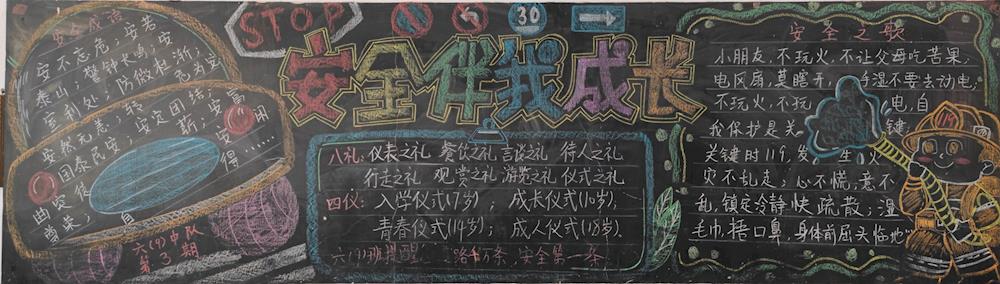 STOP
30
安全伴我成长
安不忘危,安若
泰山;警钟长鸣;安
享利处;防微杜渐;
居安思危
安然无恙;转
安定团结;
国泰民安
八礼:仪表之礼 餐饮之礼 言谈之礼 待人之礼
行走之礼 观赏之礼 游览之礼 仪式之礼
四仪:入学仪式(7岁); 成长仪式(10岁);
青春仪式(14岁); 成人仪式(18岁).
六(9)班提醒: 路千万条,安全第一条
六(9)中队
第3期
安全之歌
小朋友,不玩火,不让父母吃苦果,
电风扇,莫瞎开, 手湿不要去动电;
不玩火,不玩 电,自
我保护是关 键;
关键时119,发 生 火
灾不乱走;心不慌,意不
乱,镇定冷静快疏散;湿
毛巾,捂口鼻,身体前屈头临地
119